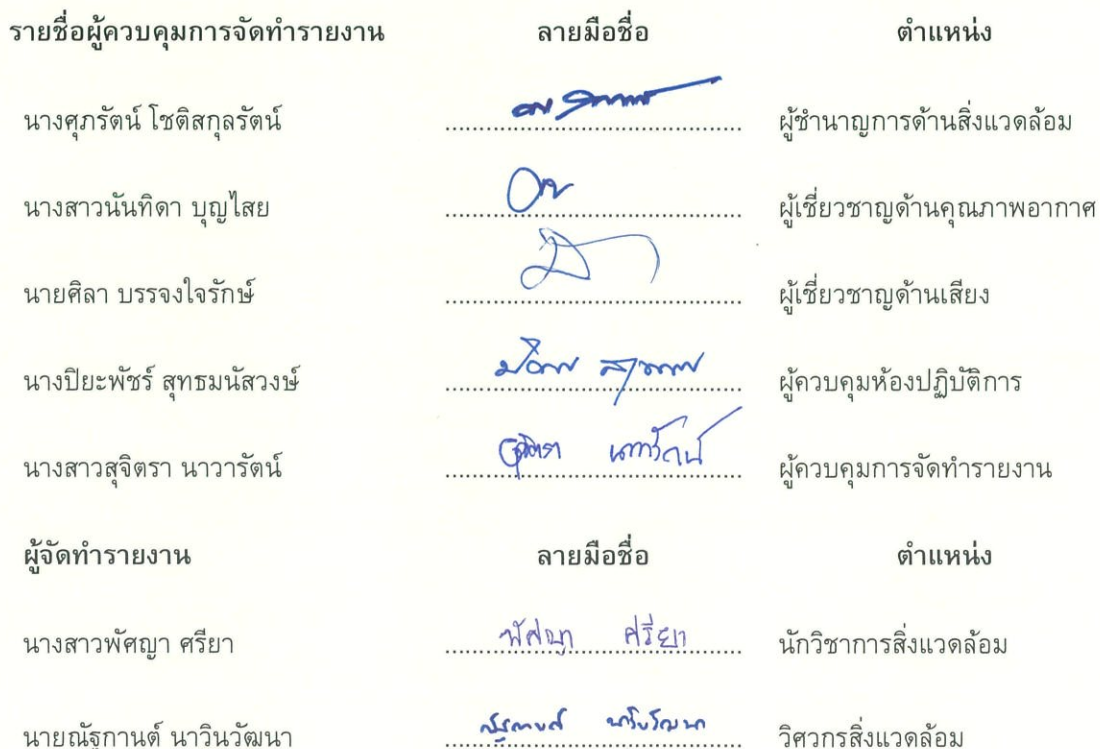 รายชื่อผู้ควบคุมการจัดทำรายงาน ลายมือชื่อ ตำแหน่ง
นางศุภรัตน์ โชติสกุลรัตน์ ผู้ชำนาญการด้านสิ่งแวดล้อม
นางสาวนันทิดา บุญไสย ผู้เชี่ยวชาญด้านคุณภาพอากาศ
นายศิลา บรรจงใจรักษ์ ผู้เชี่ยวชาญด้านเสียง
นางปิยะพัชร์ สุทธมนัสวงษ์ ผู้ควบคุมห้องปฏิบัติการ
นางสาวสุจิตรา นาวารัตน์ สุจิตรา นาวารัตน์ ผู้ควบคุมการจัดทำรายงาน
ผู้จัดทำรายงาน ลายมือชื่อ ตำแหน่ง
นางสาวพัศญา ศรียา พัศญา ศรียา นักวิชาการสิ่งแวดล้อม
นายณัฐกานต์ นาวินวัฒนา ณัฐกานต์ นาวินวัฒนา วิศวกรสิ่งแวดล้อม